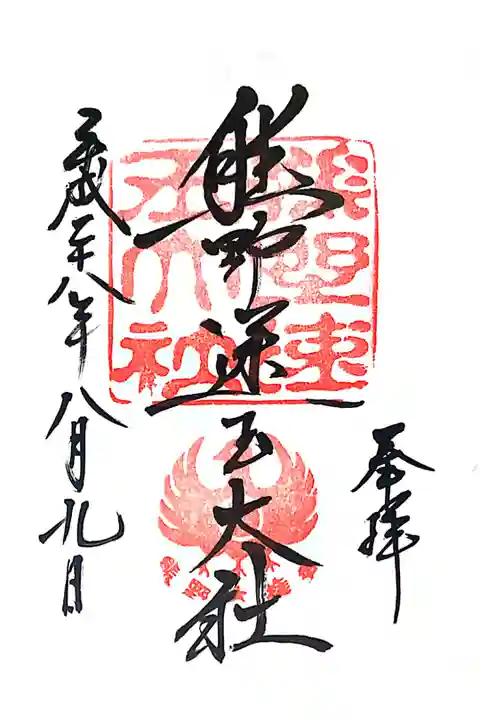 奉拝
熊野速玉大社
熊野速
玉大社
平成二十八年八月九日